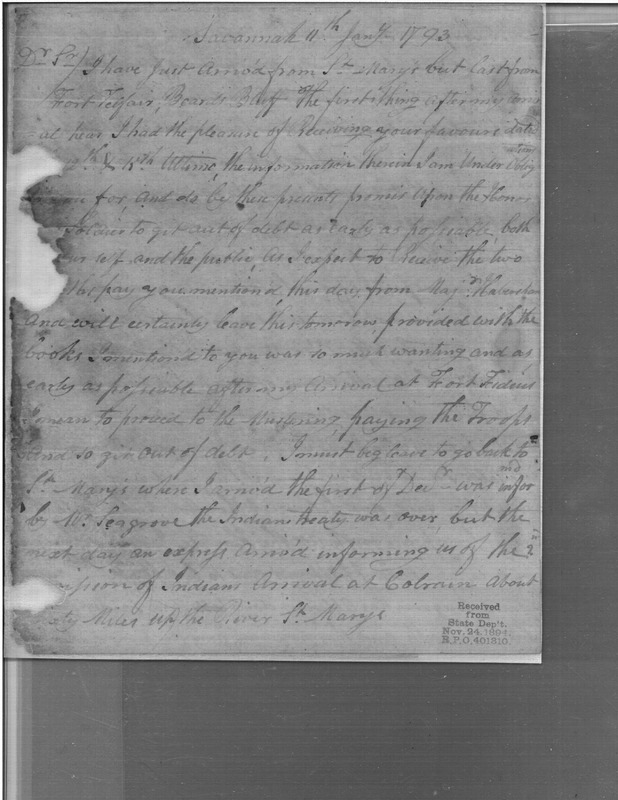 Savannah 11th Jany 1793
Dr Sr/ I have Just Arriv'd from St Marys but last from
Fort Telfair, Beards Bluff the first thing after my
al hear I had the pleasure of Receiving your favours dated
9th & 15th Ultimo, the information therein I am Under
you for, and do be these presents promis Upon the Honor
Soldier to git out of debt as early as possiable, both
self and the public, As I expect to Receive the two
pay you mentiond, this day from Majr Habersham
And will certainly leave this tomorrow provided with the
books I mentiond to you was so much wanting and as
early as possiable after my Arrival at Fort Fidius
I mean to proceed to the Mustering, paying the Troops
and so git out of debt. I must beg leave to go back to
St Marys when I arriv'd the first of Decr was inform'd
by Mr Seagrove the Indian treaty was over but the
next day an express Arriv'd informing us of the 2nd
of Indians Arrival at Colrain About
Miles up the River St Marys
Received
from
State Dep't.
Nov. 24, 1894.
R.P.O. 401310.